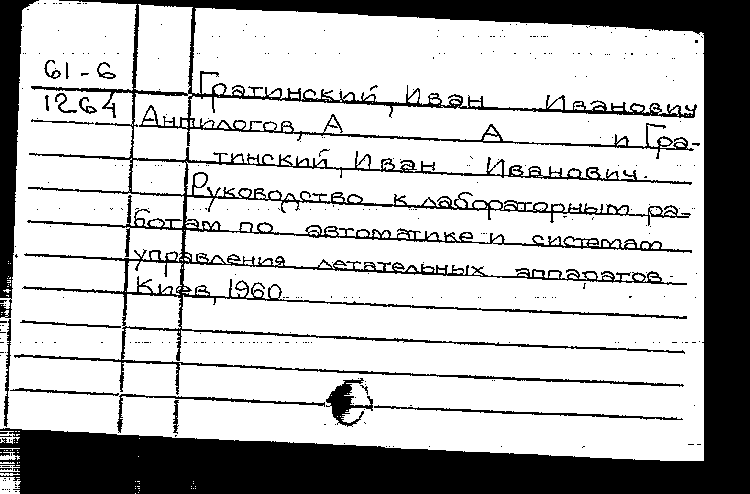 61-6
Гратинский, Иван Иванович
1264
Антилогов, А А и Гра-
тинский, Иван Иванович.
Руководство к лабораторным ра-
ботам по автоматике и системам
управления летательных аппаратов.
Киев, 1960